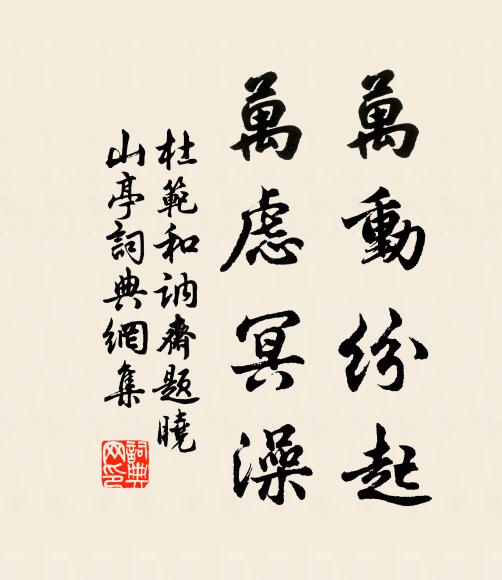 萬動紛起
萬慮冥澡
杜範和訥齋題曉
山亭詞典網集
詞典
网印